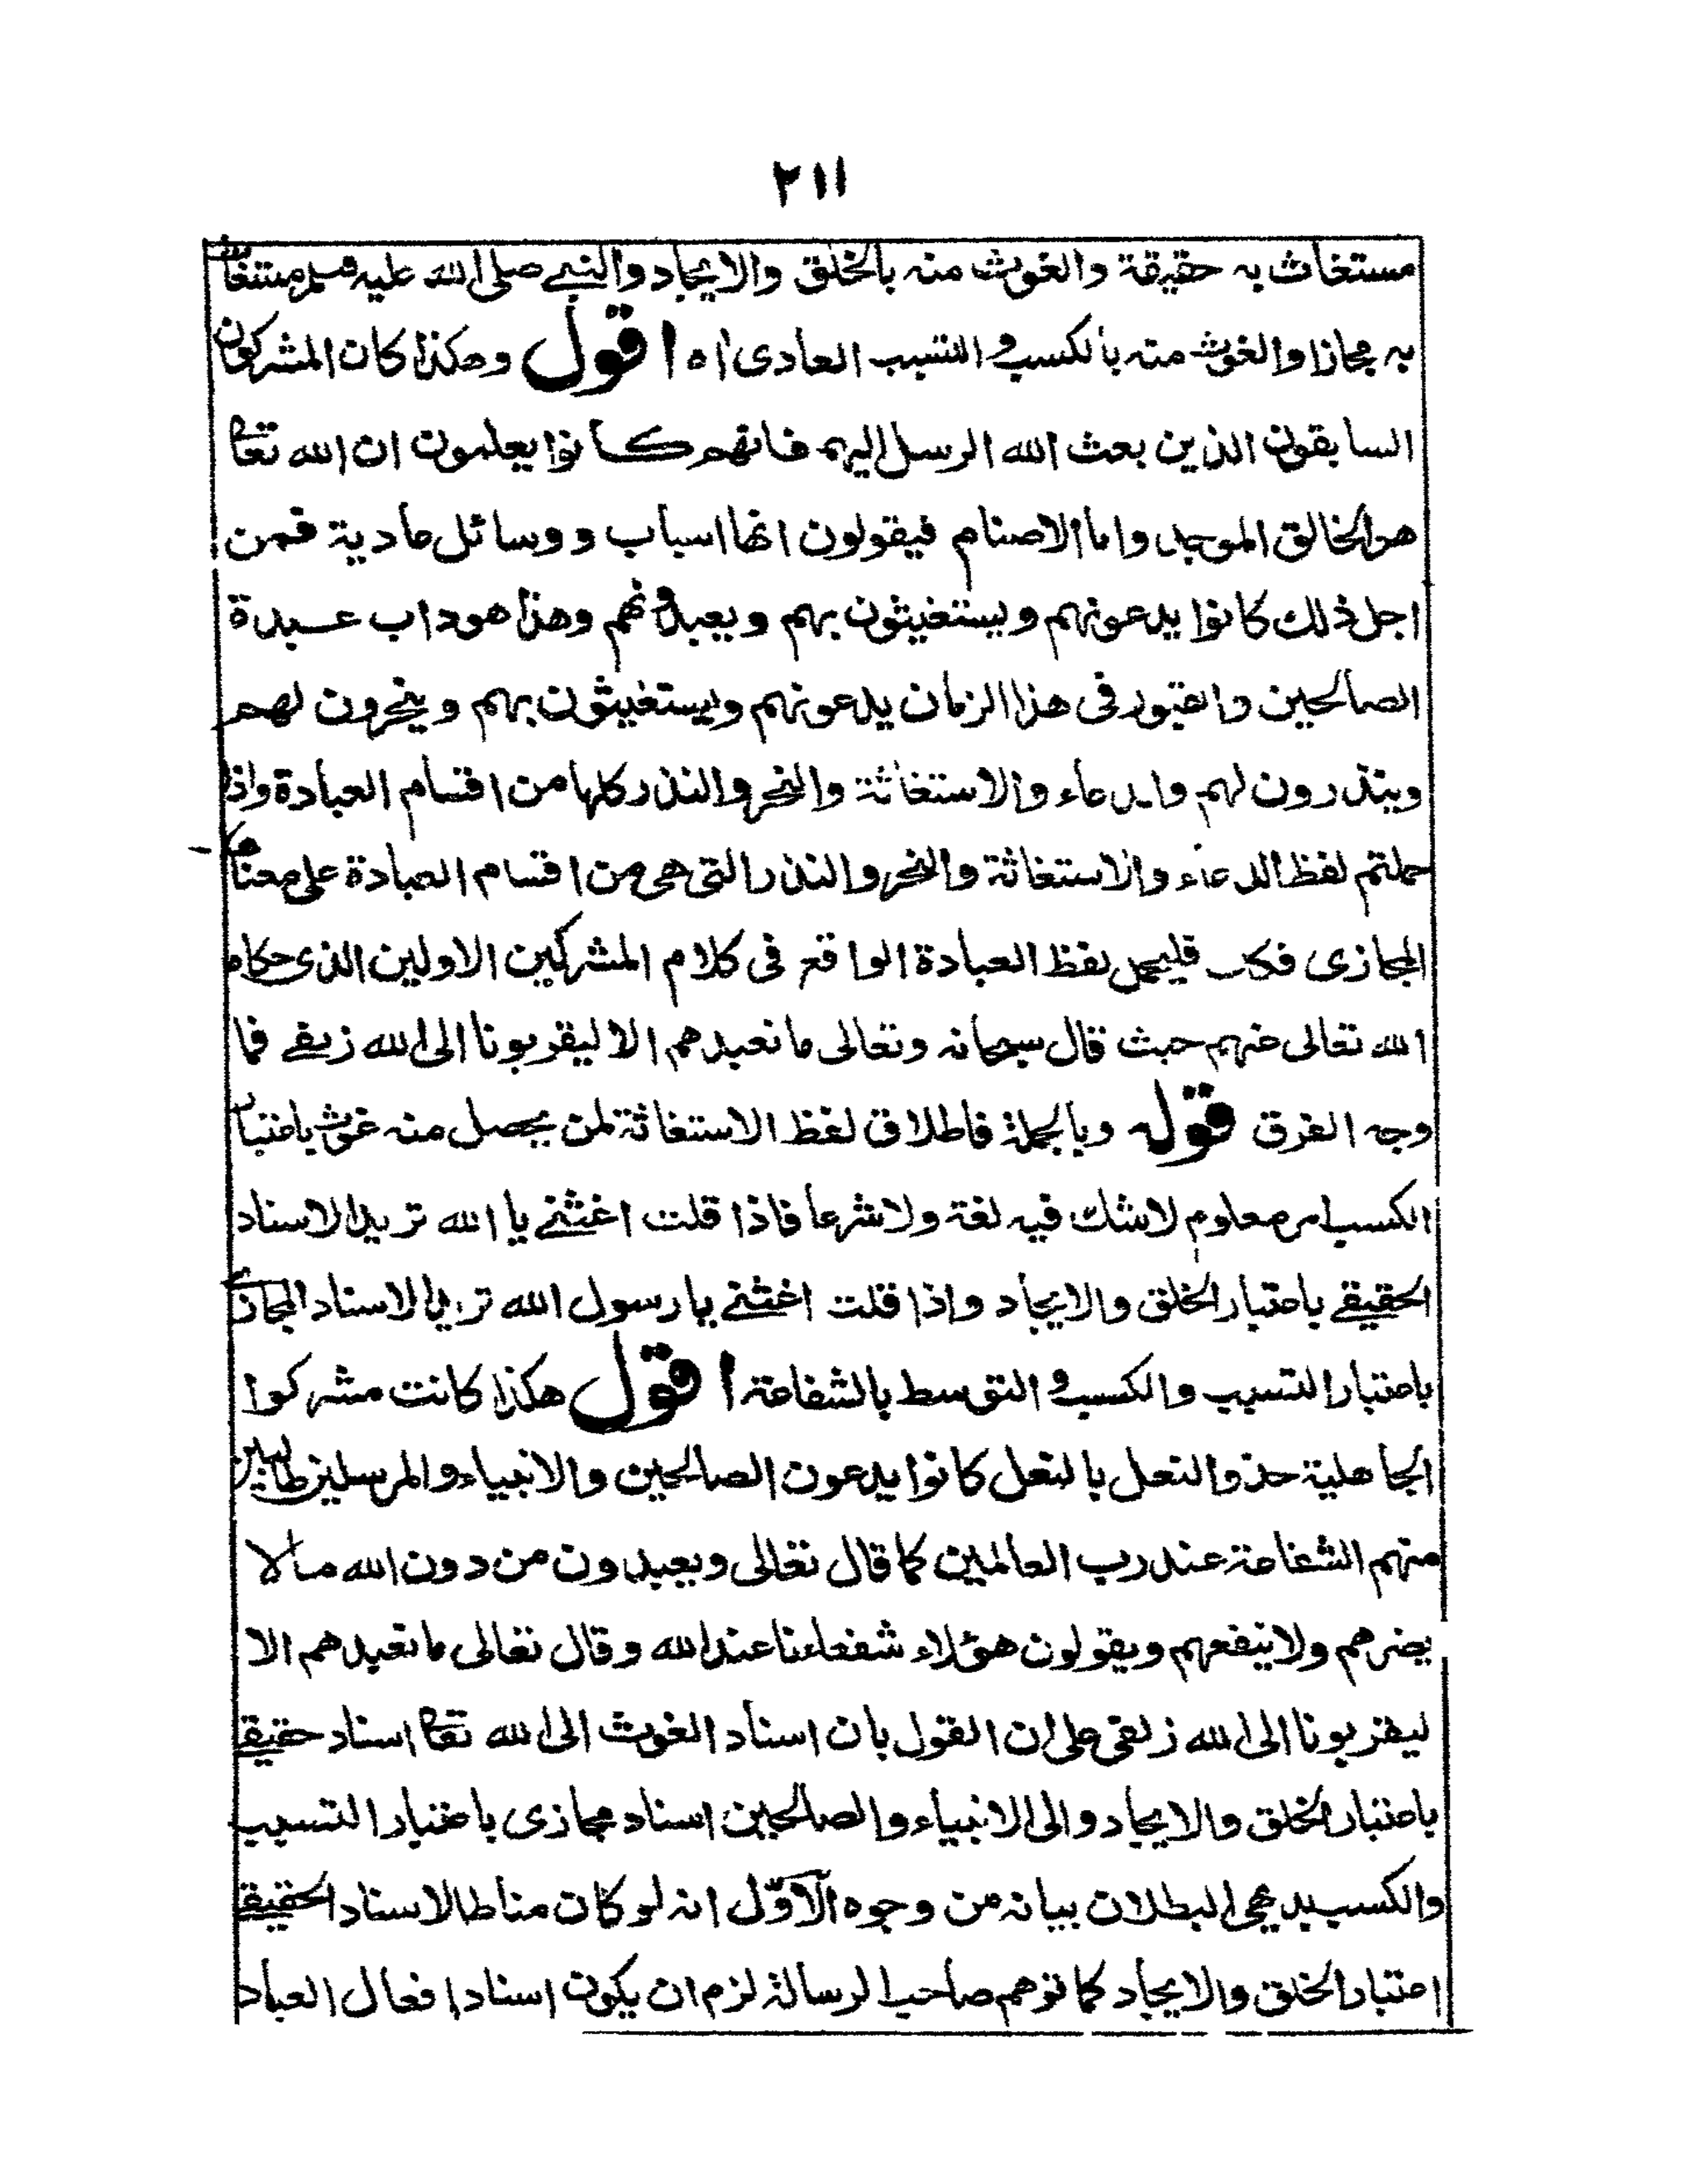 ٢١١
مستغاث به حقيقة والغوث منه بالخلق والايجاد والنبي صلى الله عليه وسلم مستغاث
به مجازا والغوث منه بالكسب و التسبب العادى اه اقول وهكذا كان المشركون
السابقون الذين بعث الله الرسل اليهم فانهم كانوا يعلمون ان الله تعا
هو الخالق الموجد واما الاصنام فيقولون انها اسباب و وسائل عادية فمن
اجل ذلك كانوا يدعونهم ويستغيثون بهم و يعبدونهم وهذا هو داب عبدة
الصالحين والقبور فى هذا الزمان يدعونهم ويستغيثون بهم و ينحرون لهم
وينذرون لهم والدعاء والاستغاثة والنحر والنذر كلها من اقسام العبادة واذا
حملتم لفظ الدعاء والاستغاثة والنحر والنذر التى هى من اقسام العبادة على معناه
المجازى فكك فليحمل لفظ العبادة الواقع فى كلام المشركين الاولين الذى حكاه
الله تعالى عنهم حيث قال سبحانه وتعالى ما نعبدهم الا ليقربونا الى الله زلفى فما
وجه الفرق قوله وبالجملة فاطلاق لفظ الاستغاثة لمن يحصل منه غوث باعتبار
الكسب امر معلوم لا شك فيه لغة ولا شرعا فاذا قلت اغثنى يا الله تريد الاسناد
الحقيقى باعتبار الخلق والايجاد واذا قلت اغثنى يا رسول الله تريد الاسناد المجازى
باعتبار التسبب والكسب و التوسط بالشفاعة اقول هكذا كانت مشركوا
الجاهلية حذو النعل بالنعل كانوا يدعون الصالحين والانبياء والمرسلين طالبين
منهم الشفاعة عند رب العالمين كما قال تعالى ويعبدون من دون الله ما لا
يضرهم ولا ينفعهم ويقولون هؤلاء شفعاءنا عند الله وقال تعالى ما نعبدهم الا
ليقربونا الى الله زلفى على ان القول بان اسناد الغوث الى الله تعا اسناد حقيقى
باعتبار الخلق والايجاد والى الانبياء والصالحين اسناد مجازى باعتبار التسبب
والكسب بديهى البطلان بيانه من وجوه الاول انه لو كان مناط الاسناد الحقيقى
اعتبار الخلق والايجاد كما توهم صاحب الرسالة لزم ان يكون اسناد افعال العباد